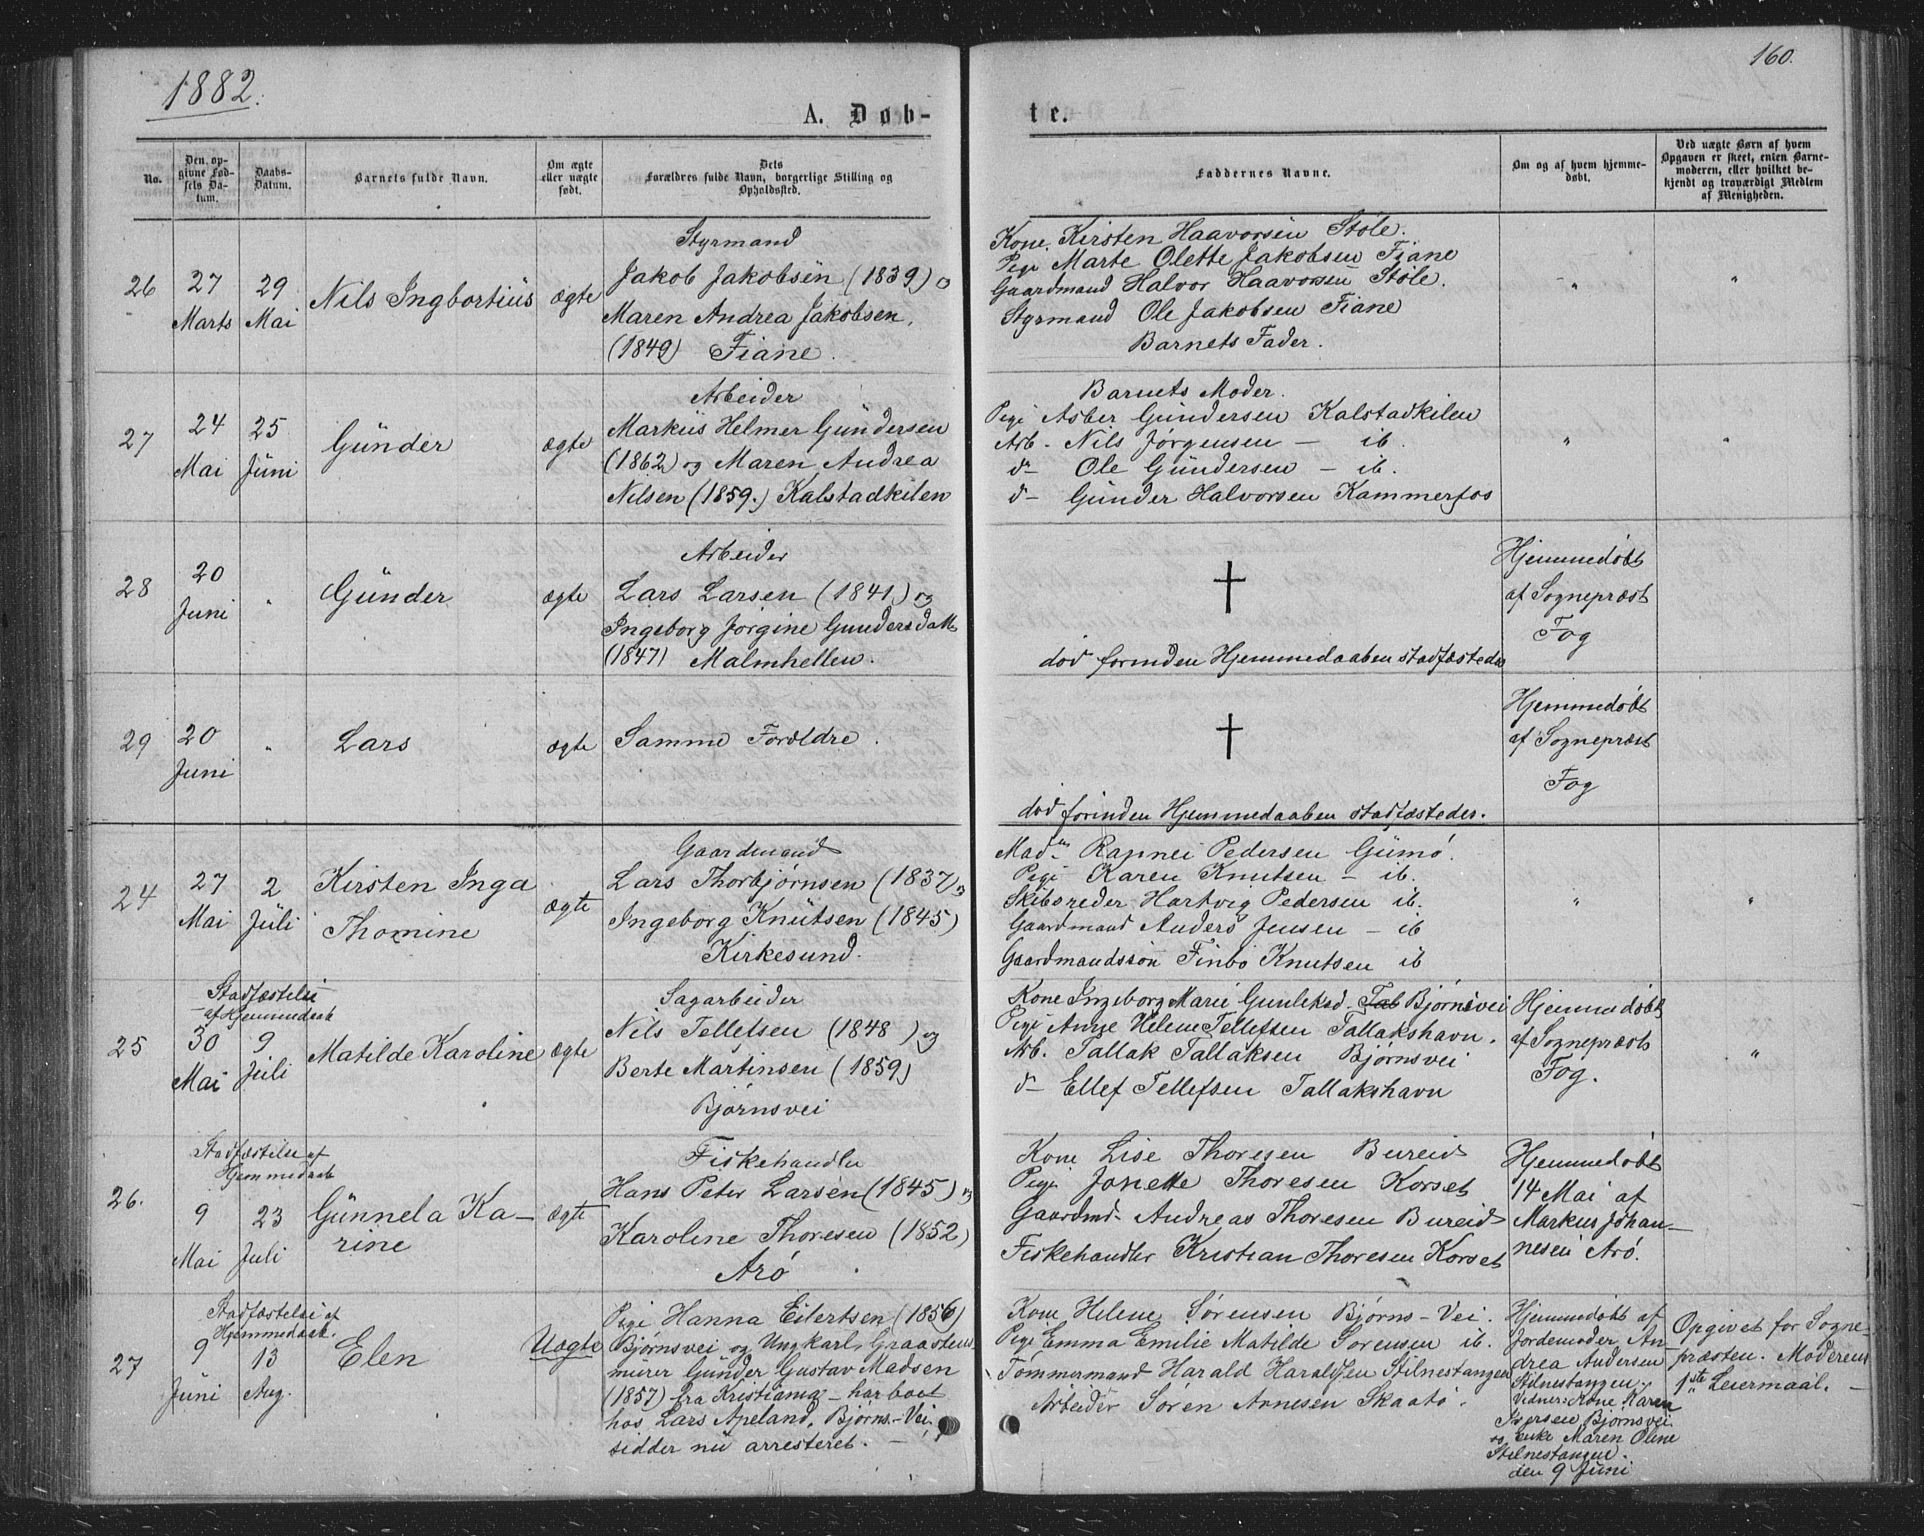 1882.
160.
A. Døb-
te.
No.
Den op-
givne Fød-
sels Da-
tum.
Daabs-
Datum.
Barnets fulde Navn.
Om ægte
eller uægte
født.
Dets
Forældres fulde Navn, borgerlige Stilling og
Opholdssted.
Faddernes Navne.
Om og af hvem hjemme-
døbt.
Ved uægte Børn af hvem
Opgaven er skeet, enten Barne-
moderen, eller hvilket be-
kjendt og troværdigt Medlem
af Menigheden.
26
27
Marts
29
Mai
Nils Ingbortius
ægte
Styrmand
Jakob Jakobsen (1839) og
Maren Andrea Jakobsen,
(1849) Fiane.
Kone. Kirsten Haavorsen Støle.
Pige Marte Olette Jakobsen Fiane
Gaardmand Halvor Haavorsen Støle.
Styrmand Ole Jakobsen Fiane
Barnets Fader.
"
"
27
24
Mai
25
Juni
Gunder
ægte
Arbeider
Markus Helmer Gundersen
(1862) og Maren Andrea
Nilsen (1859.) Kalstadkilen
Barnets Moder.
Pige Asber Gundersen Kalstadkilen
Arb. Nils Jørgensen — ib.
do Ole Gundersen — ib.
do Gunder Halvorsen Kammerfos
"
"
28
20
Juni
"
Gunder
ægte
Arbeider
Lars Larsen (1841) og
Ingeborg Jørgine Gundersdatt
(1847) Malmhellen.
†
død forinden Hjemmedaaben stadfæstedes
Hjemmedøbt
af Sognepræst
Fog
29
20
Juni
"
Lars
ægte
Samme Forældre.
†
død forinden Hjemmedaaben stadfæstedes.
Hjemmedøbt
af Sognepræst
Fog
24
27
Mai
2
Juli
Kirsten Inga
Thomine
ægte
Gaardmand
Lars Thorbjørnsen (1837) og
Ingeborg Knutsen (1845)
Kirkesund.
Madm Ragnei Pedersen Gumø.
Pige Karen Knutsen — ib.
Skibsreder Hartvig Pedersen ib.
Gaardmand Anders Jensen — ib
Gaardmandssøn Finbo Knutsen ib
"
"
25
Stadfæstelse
af Hjemmedaab
30
Mai
9
Juli
Matilde Karoline
ægte
Sagarbeider
Nils Tellefsen (1848) og
Berte Martinsen (1859)
Bjørnsvei
Kone Ingeborg Marie Gunleksd. Tal Bjørnsvei
Pige Aunge Helene Tellefsen Tallakshavn.
Arb. Tallak Tallaksen Bjørnsvei
do Ellef Tellefsen Tallakshavn
Hjemmedøbt
af Sognepræst
Fog.
"
26.
Stadfæstelse af
Hjemmedaab
9
Mai
23
Juli
Gunnela Ka-
rine
ægte
Fiskehandler
Hans Peter Larsen (1845) og
Karoline Thoresen (1852)
Arø
Kone Lise Thoresen Bureid
Pige Jonette Thoresen Korset
Gaardmd. Andreas Thoresen Bureid
Fiskehandler Kristian Thoresen Korset
Hjemmedøbt
14 Mai af
Markus Johan-
nesen Arø.
27
Stadfæstelse af
Hjemmedaab.
9
Juni
13
Aug.
Elen
Uægte
Pige Hanna Eilertsen (1856)
Bjørnsvei og Ungkarl, Graastens-
murer Gunder Gustav Madsen
(1857) fra Kristiania — har boet
hos Lars Apeland, Bjørns-Vei
sidder nu arresteret. —
Kone Helene Sørensen Bjørns-Vei.
Pige Emma Emilie Matilde Sørensen ib.
Tømmermand Harald Haraldsen Stilnestangen
Arbeider Søren Arnesen Skaatø.
Hjemmedøbt af
Jordemoder An-
drea Andersen
Stilnestangen,
Vidner: Kone Karen
Iversen Bjørnsvei
og Enke Maren Oline
Stilnestangen.
den 9 Juni
Opgivet for Sogne-
præsten. Moderens
1ste Leiermaal. —